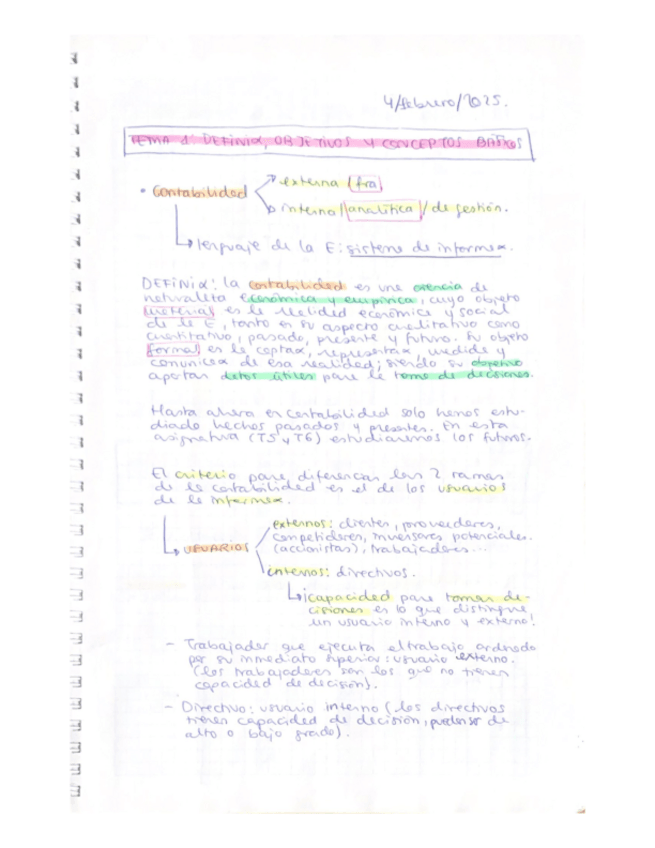 4/febrero/2025.
TEMA 1: DEFINIα, OBJETIVOS Y CONCEPTOS BÁSICOS
• Contabilidad
externa (fra)
interna/analítica/de gestión.
lenguaje de la E: sistema de informeα.
DEFINIα: la contabilidad es una ciencia de
naturaleza económica y empírica, cuyo objeto
material es la realidad económica y social
de la E, tanto en su aspecto cualitativo como
cuantitativo, pasado, presente y futuro. Su objeto
formal es la captaα, representaα, medida y
comunicaα de esa realidad; siendo su objetivo
aportar datos útiles para la toma de decisiones.
Hasta ahora en contabilidad solo hemos estu-
diado hechos pasados y presentes. En esta
asignatura (T5 y T6) estudiaremos los futuros.
El criterio para diferenciar las 2 ramas
de la contabilidad es el de los usuarios
de la informeα.
USUARIOS
externos: clientes, proveedores,
competidores, inversores potenciales.
(accionistas), trabajadores...
internos: directivos.
¡capacidad para tomar de-
cisiones es lo que distingue
un usuario interno y externo!
- Trabajador que ejecuta el trabajo ordenado
por su inmediato superior: usuario externo.
(los trabajadores son los que no tienen
capacidad de decisión).
- Directivo: usuario interno (los directivos
tienen capacidad de decisión, pueden ser de
alto o bajo grado).